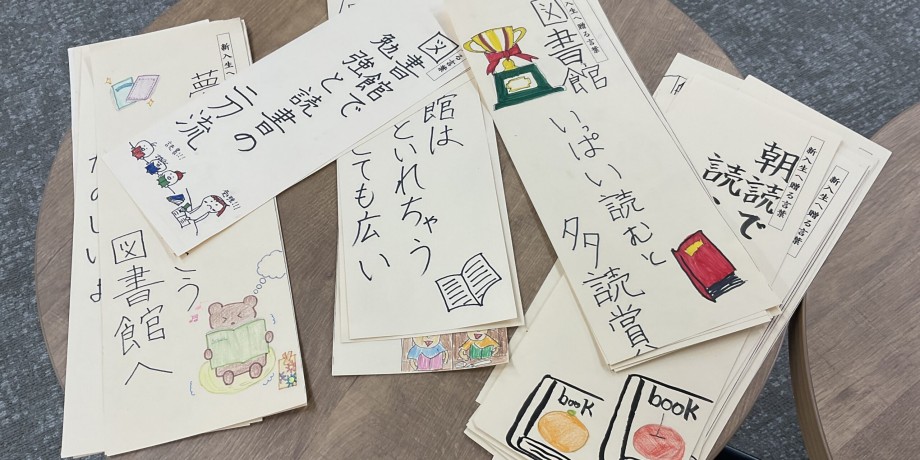 新入生へ
夢
こう
図書館へ
たのしいよ
る言葉
図書館で
勉強と読書の
二刀流
読書!!
勉強!!
館は
といれちゃう
ても広い
入生へ贈る言葉
図書館
いっぱい読むと
多読賞
新入生へ贈る言葉
朝読で
読
新入生へ贈る言葉
book
book